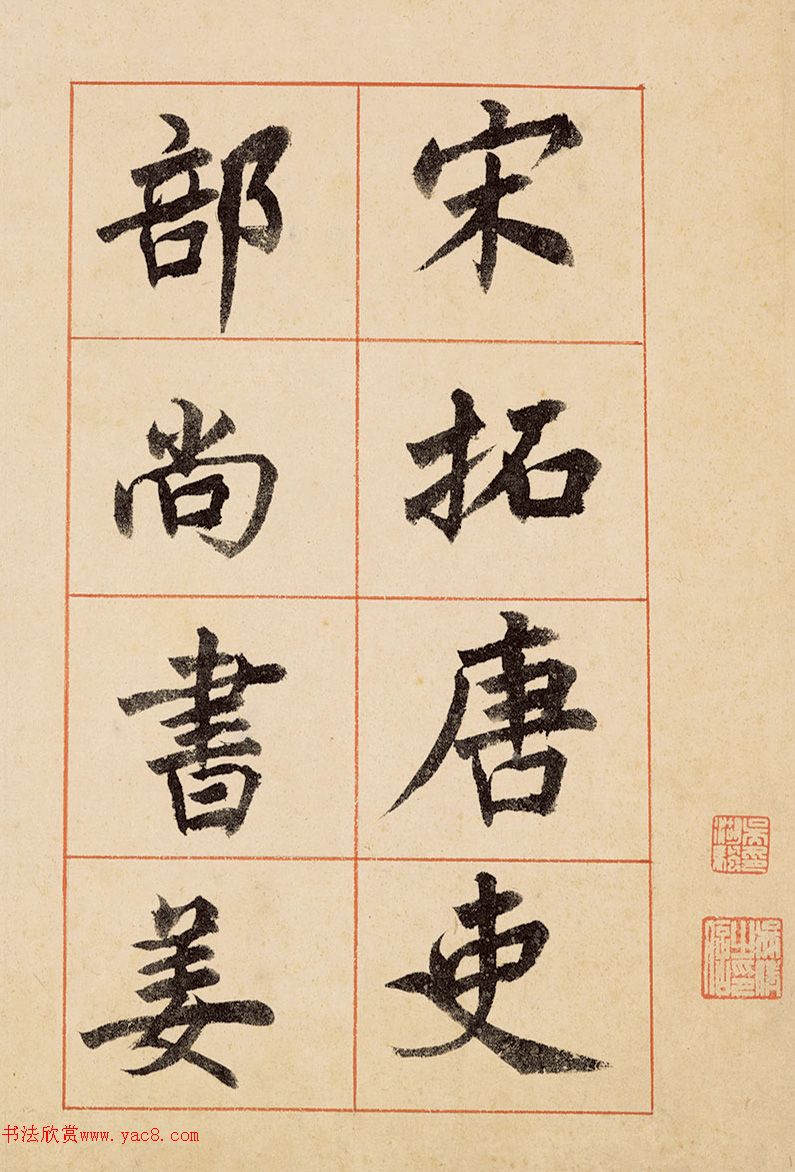 宋拓唐吏
部尚書姜
书法欣赏www.yac8.com